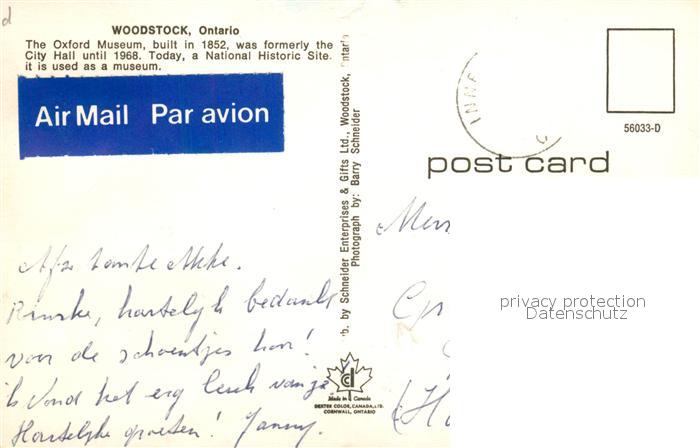 d
WOODSTOCK, Ontario
The Oxford Museum, built in 1852, was formerly the
City Hall until 1968. Today, a National Historic Site.
it is used as a museum.
Air Mail Par avion
tante
hartelijk bedankt
voor de schoentjes hoor!
Ik vond het erg leuk van je
Hartelijke groeten! Janny.
b. by Schneider Enterprises & Gifts Ltd., Woodstock, Ontario
Photograph by: Barry Schneider
Made in Canada
DEXTER COLOR, CANADA, LTD.
CORNWALL, ONTARIO
INNE
56033-D
post card
privacy protection
Datenschutz